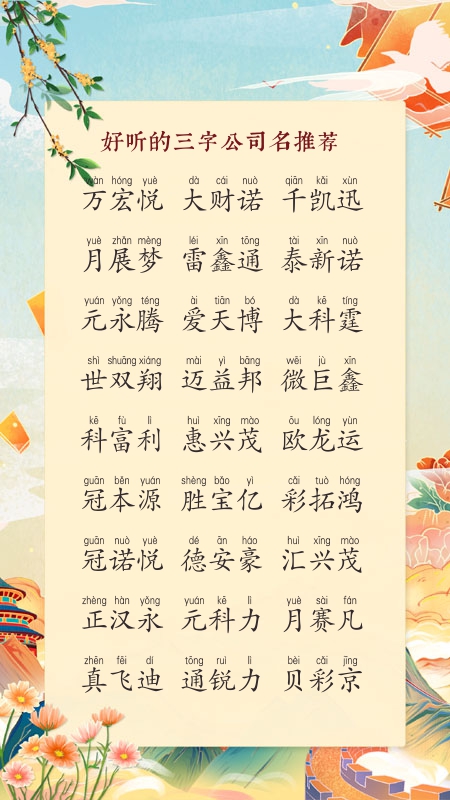 好听的三字公司名推荐
wàn hóng yuè dà cái nuò qiān kǎi xùn
万宏悦 大财诺 千凯迅
yuè zhǎn mèng léi xīn tōng tài xīn nuò
月展梦 雷鑫通 泰新诺
yuán yǒng téng ài tiān bó dà kē tíng
元永腾 爱天博 大科霆
shì shuāng xiáng mài yì bāng wēi jù xīn
世双翔 迈益邦 微巨鑫
kē fù lì huì xīng mào ōu lóng yùn
科富利 惠兴茂 欧龙运
guān běn yuán shèng bǎo yì cǎi tuò hóng
冠本源 胜宝亿 彩拓鸿
guān nuò yuè dé ān háo huì xīng mào
冠诺悦 德安豪 汇兴茂
zhèng hàn yǒng yuán kē lì yuè sài fán
正汉永 元科力 月赛凡
zhēn fēi dí tōng ruì lì bèi cǎi jīng
真飞迪 通锐力 贝彩京